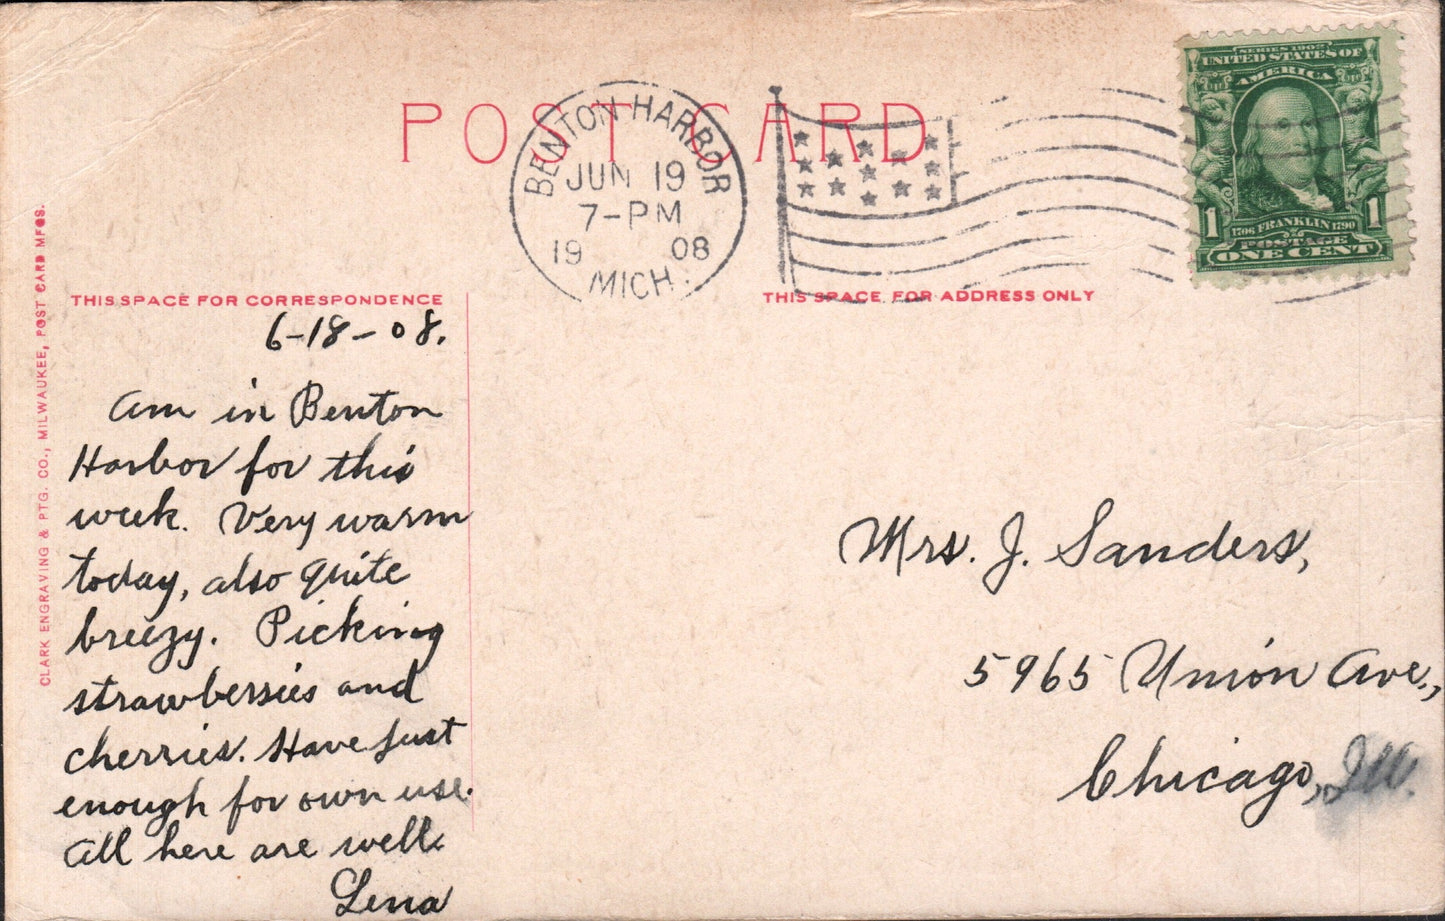 POST CARD
BENTON HARBOR
JUN 19
7-PM
19 08
MICH.
SERIES 1902
UNITED STATES OF
AMERICA
1 1706 FRANKLIN 1790 1
POSTAGE
ONE CENT
CLARK ENGRAVING & PTG. CO., MILWAUKEE, POST CARD MFGS.
THIS SPACE FOR CORRESPONDENCE
6-18-08.
Am in Benton
Harbor for this
week. Very warm
today, also quite
breezy. Picking
strawberries and
cherries. Have just
enough for own use.
All here are well.
Lena
THIS SPACE FOR ADDRESS ONLY
Mrs. J. Sanders,
5965 Union Ave.,
Chicago, Ill.